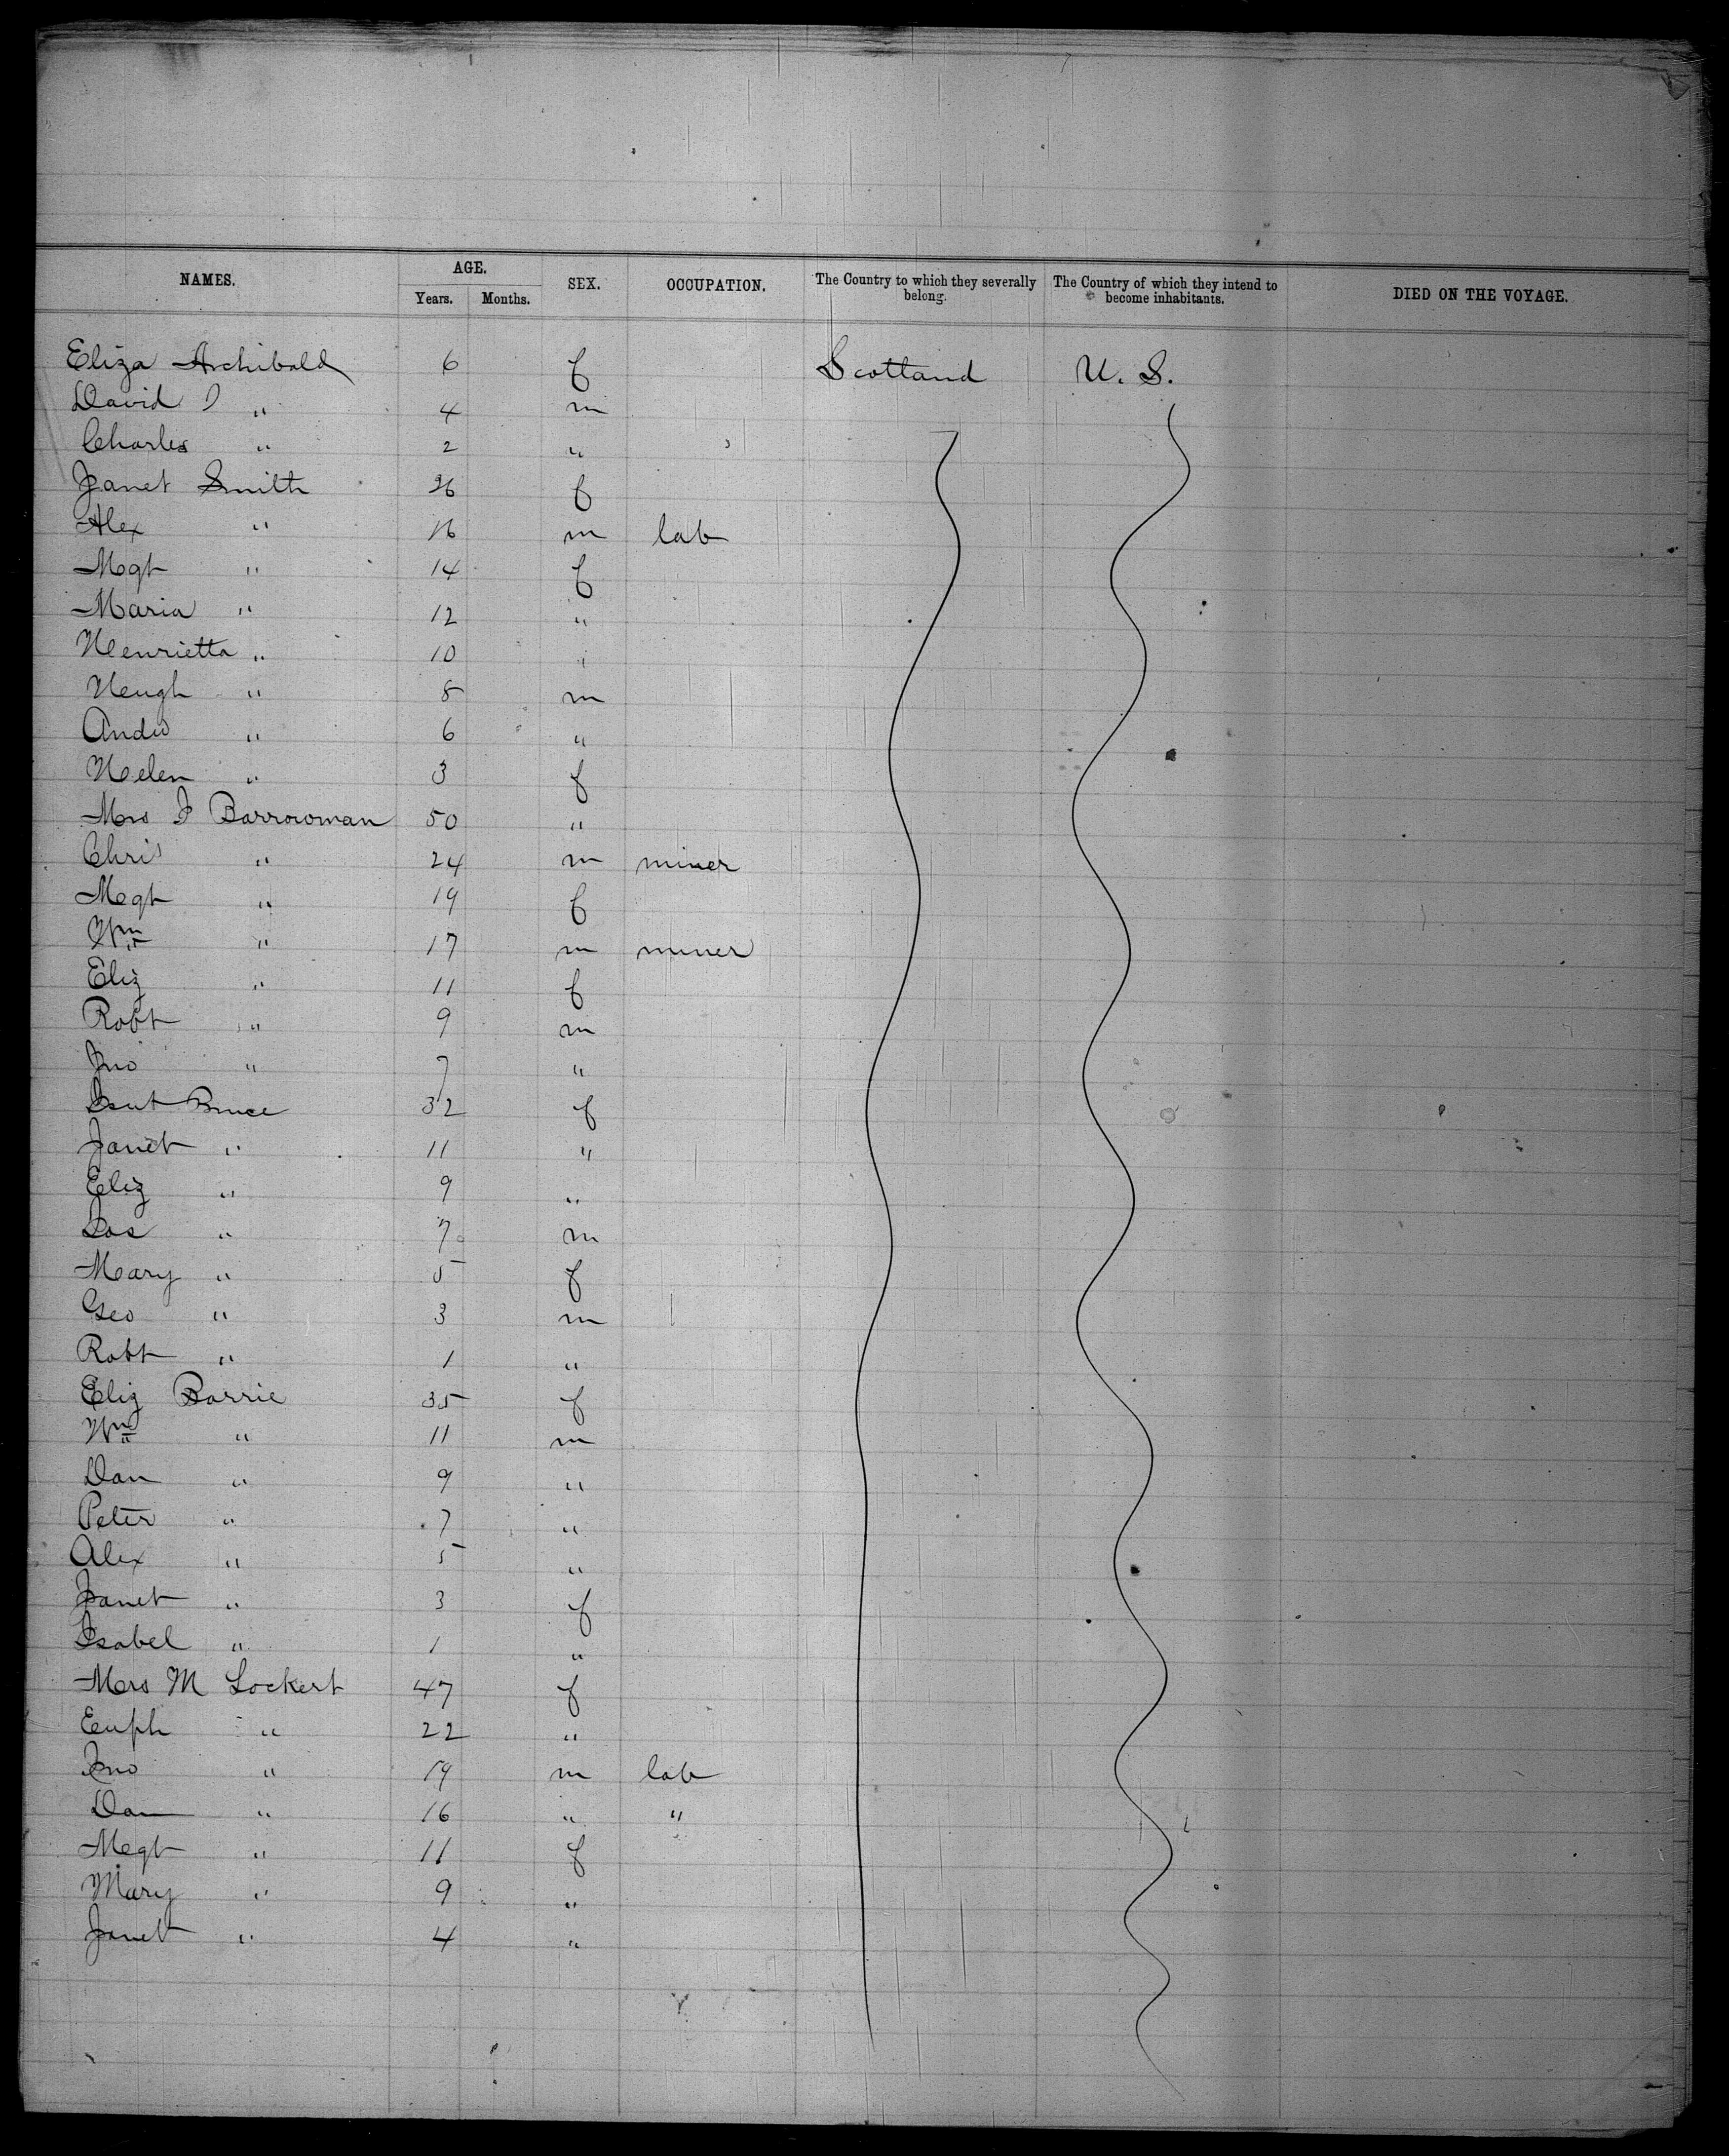 NAMES. AGE. SEX. OCCUPATION. The Country to which they severally belong. The Country of which they intend to become inhabitants. DIED ON THE VOYAGE.
Years. Months.
Eliza Archibald 6 f Scotland U. S.
David J " 4 m
Charles " 2 "
Janet Smith 36 f
Alex " 16 m lab
Mgt " 14 f
Maria " 12 "
Henrietta " 10 "
Heugh " 8 m
Andw " 6 "
Helen " 3 f
Mrs J Barrowman 50 "
Chris " 24 m miner
Mgt " 19 f
Wm " 17 m miner
Eliz " 11 f
Robt " 9 m
Jno " 7 "
Bruce 32 f
Janet " 11 "
Eliz " 9 "
Jas " 7 m
Mary " 5 f
Geo " 3 m
Robt " 1 "
Eliz Barrie 35 f
Wm " 11 m
Dan " 9 "
Peter " 7 "
Alex " 5 "
Janet " 3 f
Isabel " 1 "
Mrs M Lockert 47 f
Euph " 22 "
Jno " 19 m lab
Dan " 16 " "
Mgt " 11 f
Mary " 9 "
Janet " 4 "